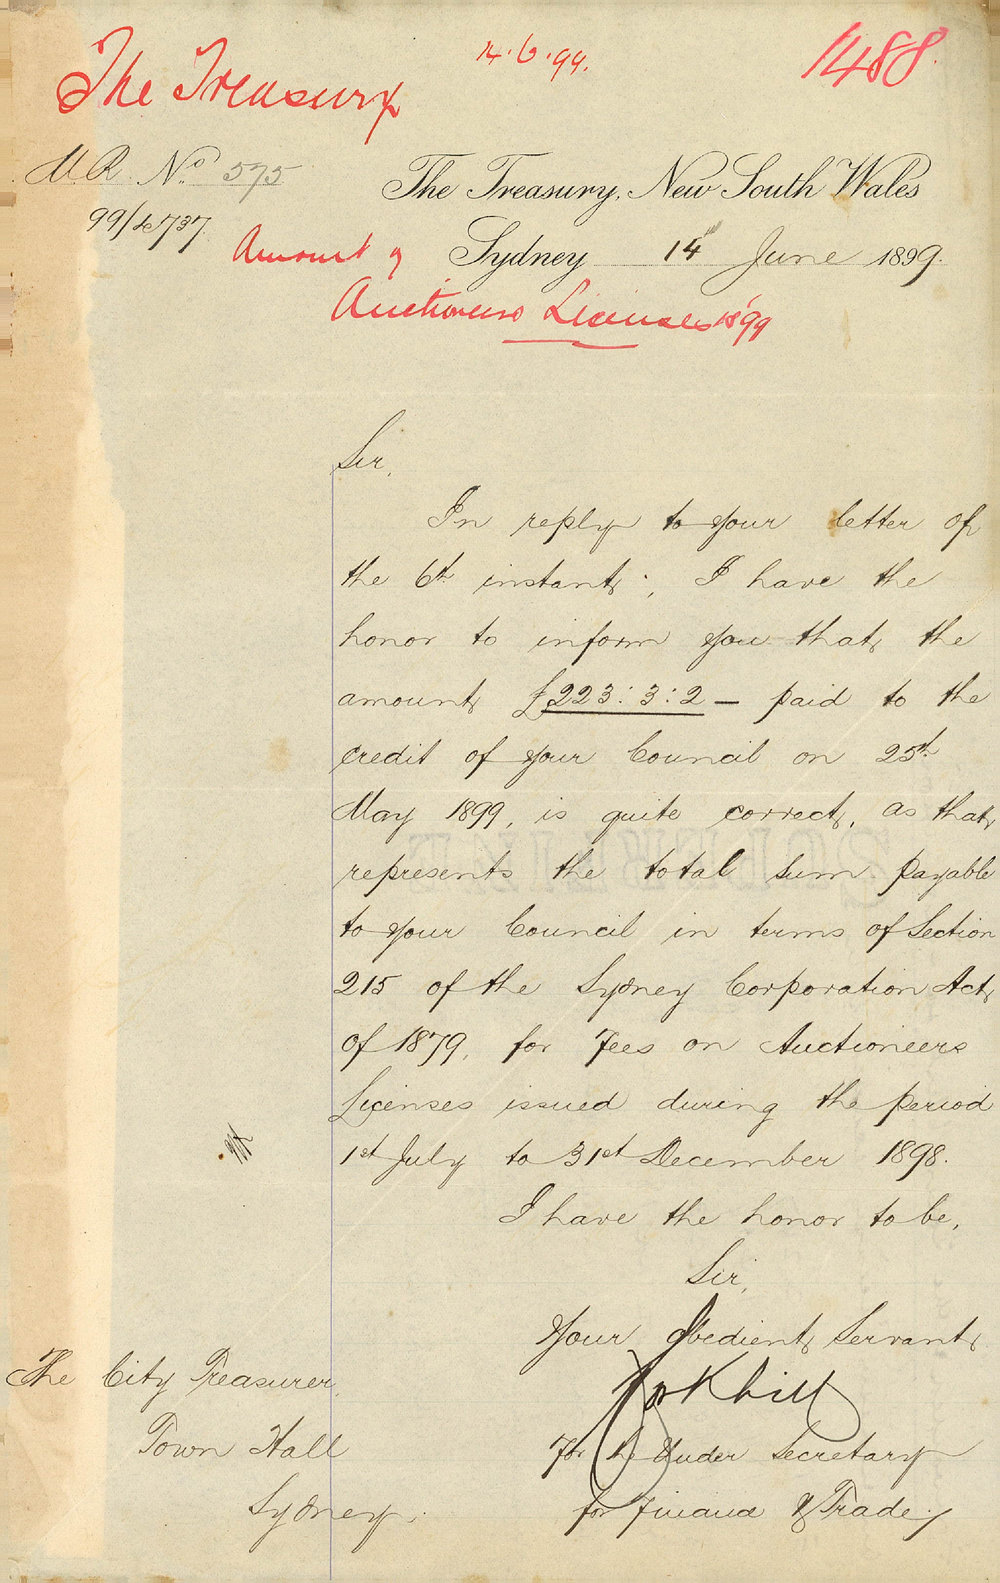 The Treasury
14.6.99.
1488
M R. No 575
99/4737
The Treasury, New South Wales
Sydney 14th June 1899.
Amount of
Auctioneers Licenses 1899
Sir,
In reply to your letter of
the 6th instant, I have the
honor to inform you that the
amount £223:3:2 — paid to the
credit of your Council on 25th
May 1899, is quite correct, as that
represents the total sum payable
to your Council in terms of Section
215 of the Sydney Corporation Act
of 1879, for Fees on Auctioneers
Licenses issued during the period
1st July to 31st December 1898.
I have the honor to be,
Sir,
Your Obedient Servant
For the Under Secretary
for Finance & Trade
The City Treasurer
Town Hall
Sydney.